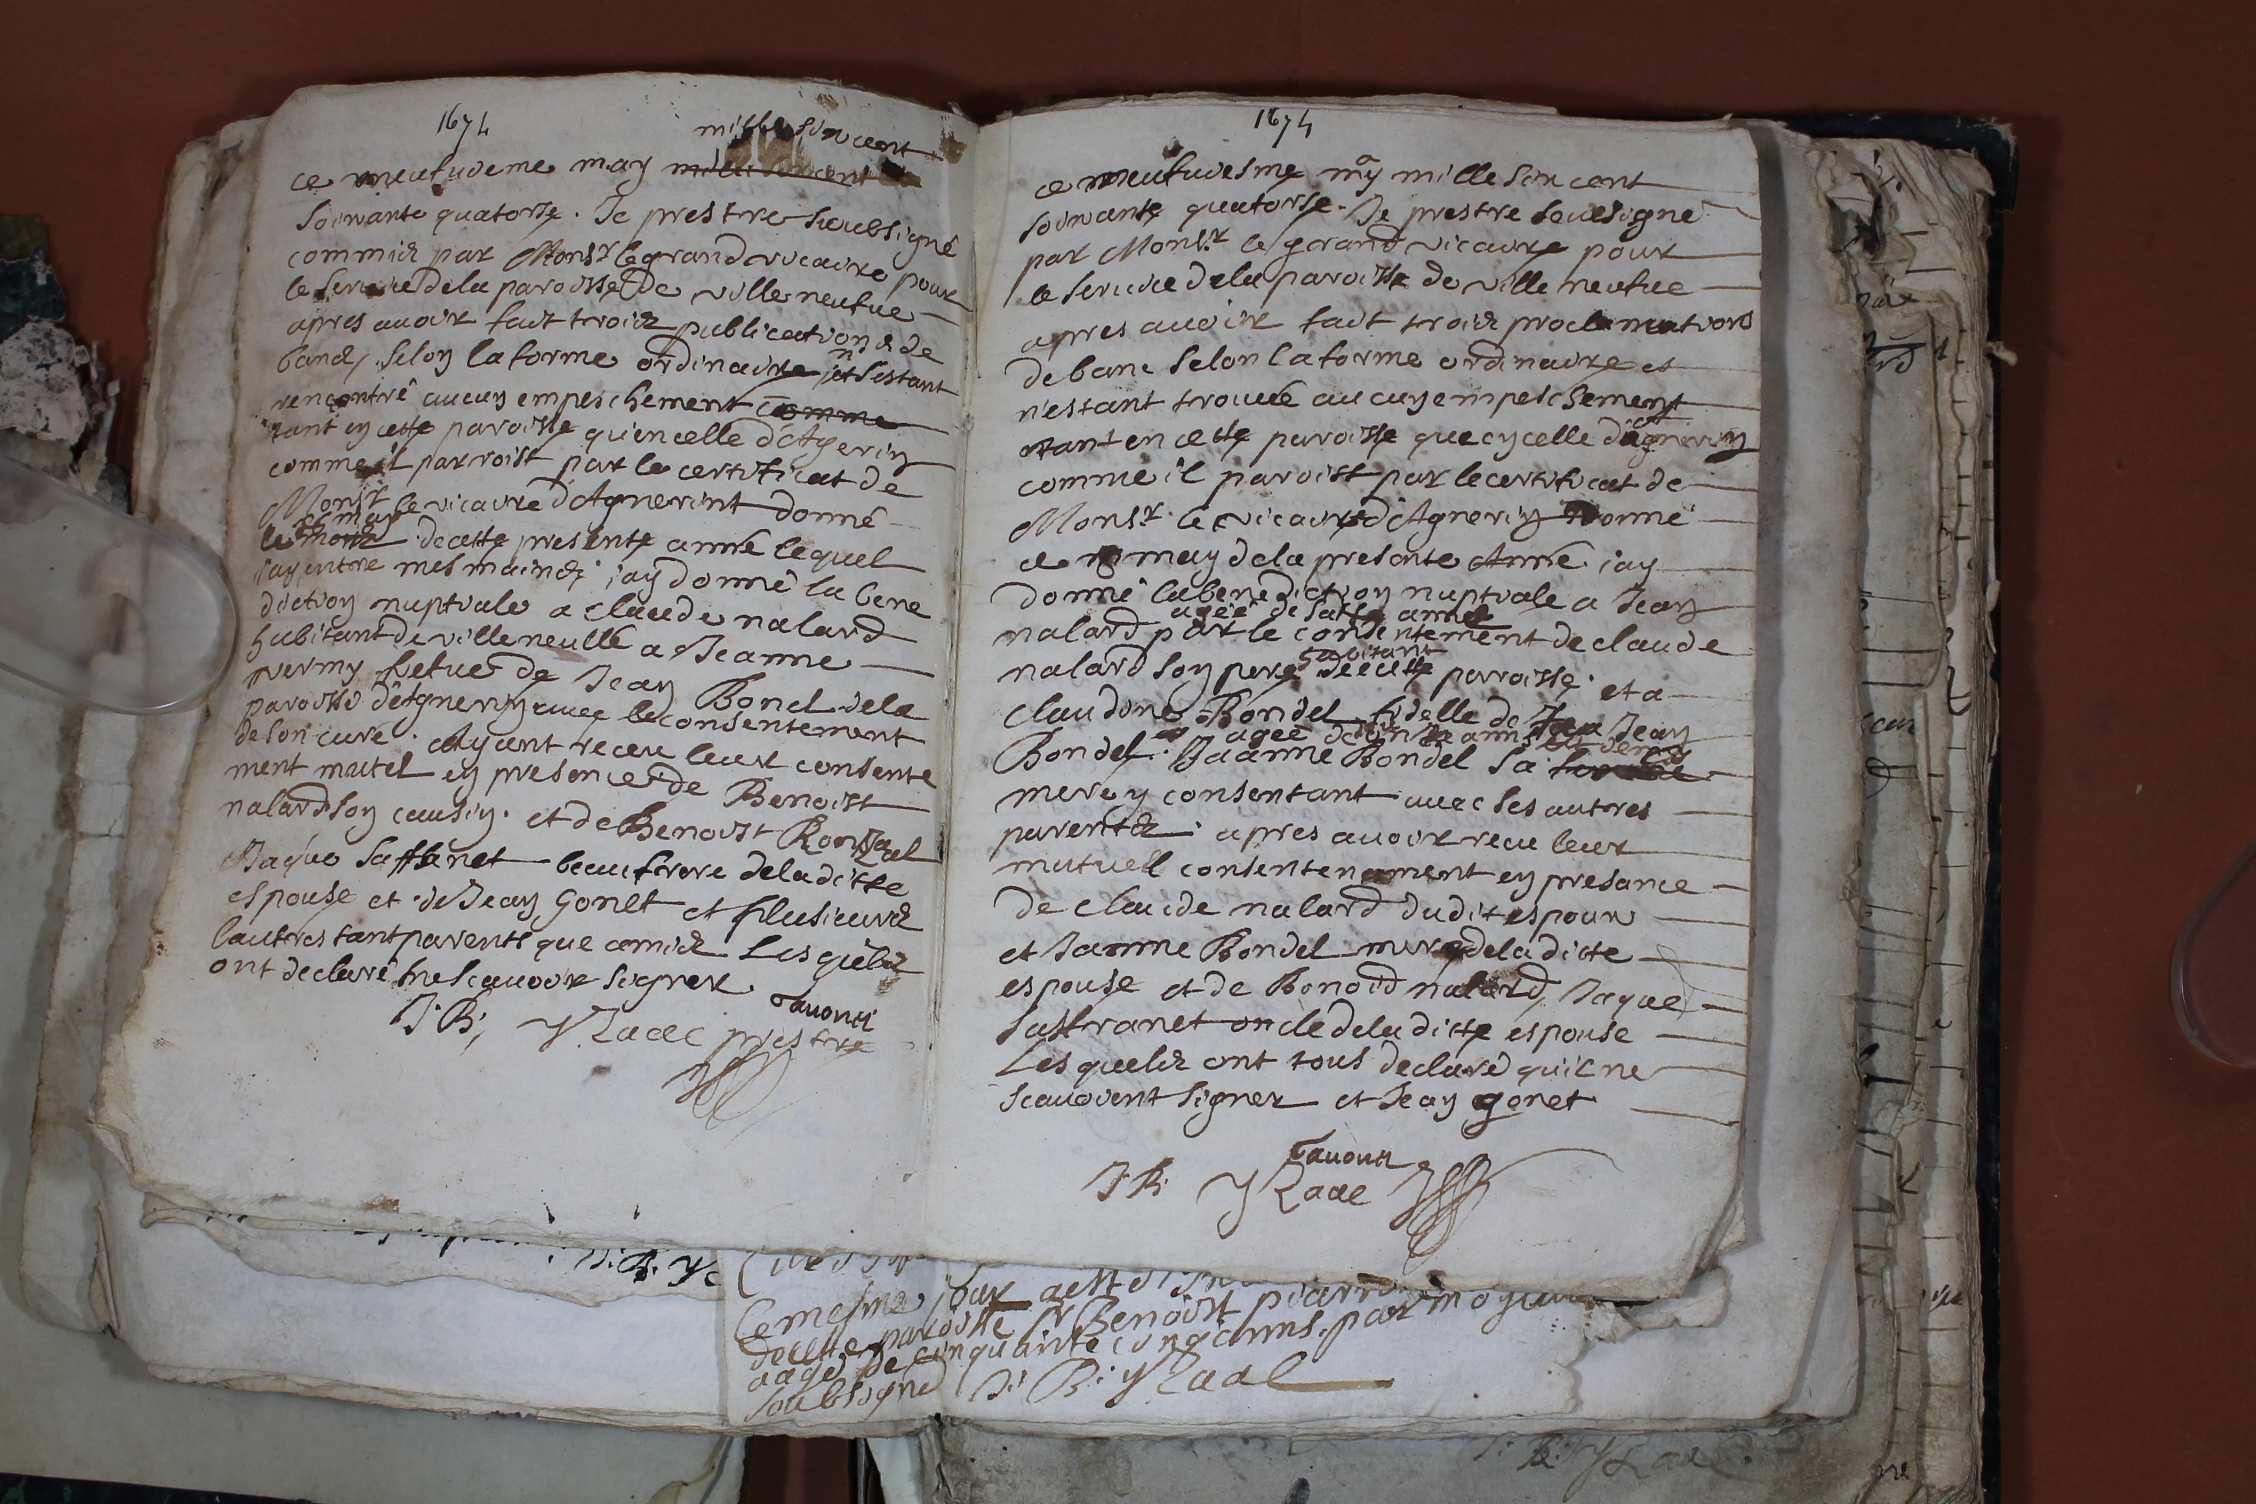 1674
mille sixcent
ce neufuieme may mille sixcent
soixante quatorse. Je prestre soubsigné
commis par Monsr le grand vicaire pour
le seruice de la paroisse de villeneufue
apres auoir fait trois publications de
bancs selon la forme ordinaire et n sestant
rencontré aucun empeschement comme
tant en cette paroisse qu'en celle d'Agerin
comme il parroist par le certificat de
Monsr le vicaire d'Agnerint donné
may
le mois de cette presente année lequel
j'ay entre mes mains j'ay donné la bene
diction nuptiale a claude nalard
habitant de villeneufue a Jeanne
vermy fefue de Jean Bondel de la
paroisse d'Agnerin auec le consentement
de son curé. Ayant receu leur consente
ment mutel en presence de Benoist
nalard son cousin. et de Benoist
Jaque Saffranet beaufrere de la ditte
espouse et de Jean Gonet et plusieurs
autres tant parents que amis Lesquels
ont declaré ne scauoir signer.
J. B. yzaac prestre
1674
ce neufuiesme may mille sixcent
soixante quatorse. Je prestre sousigné
par Monsr le grand vicaire pour
le seruice de la paroisse de villeneufue
apres auoir fait trois proclamations
de banc selon la forme ordinaire et
n'estant trouué aucun empeschement
tant en cette paroisse que en celle d'agnerin
comme il paroist par le certificat de
Monsr le vicaire d'Agnerin donné
ce may de la presente Année j'ay
donné la benediction nuptiale a Jean
agée de annee
nalard par le consentement de claude
habitant
nalard son pere de cette paroisse. et a
claudine Bondel fidelle de Jean
agée de ans et demy
Bondel. Jaanne Bondel sa
mere y consentant auec ses autres
parents. apres auoir receu leur
mutuell consentenament en presance
de claude nalard dudit espoux
et Jaanne Bondel mere de la ditte
espouse et de Benoid nalard, Jaque
Saffranet oncle de la ditte espouse
Lesquels ont tous declaré qu'il ne
scauoient signer et Jean gonet
J. B. yzaac
Ce mesme jour
de cette paroisse Benoist pierre
aagé de cinquante cinq anns. par moy
soubsigné J. B. yzaac